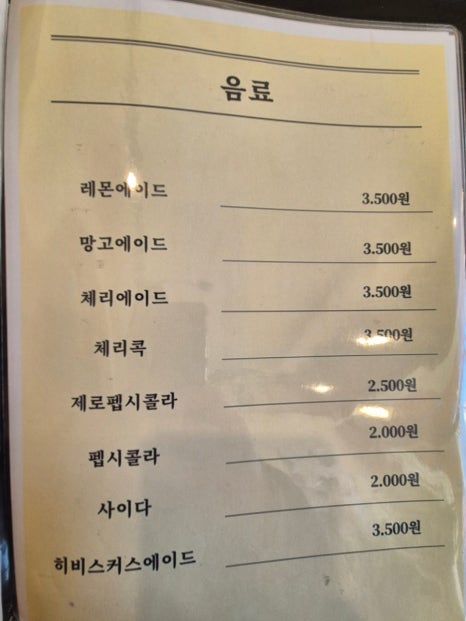 음료
레몬에이드 3.500원
망고에이드 3.500원
체리에이드 3.500원
체리콕 3.500원
제로펩시콜라 2.500원
펩시콜라 2.000원
사이다 2.000원
히비스커스에이드 3.500원